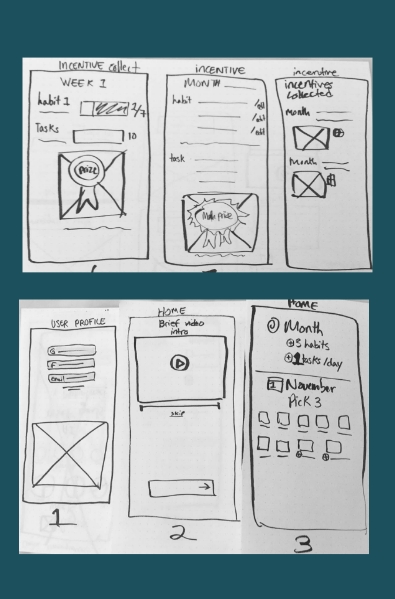 INCENTIVE collect
WEEK 1
habit 1
2/7
Tasks
10
PRIZE
INCENTIVE
MONTH
habit
task
prize
incentive
incentives
collected
month
Month
USER PROFILE
G
F
email
1
HOME
Brief video
intro
skip
2
HOME
Month
5 habits
1 tasks/day
1 November
PicK 3
3